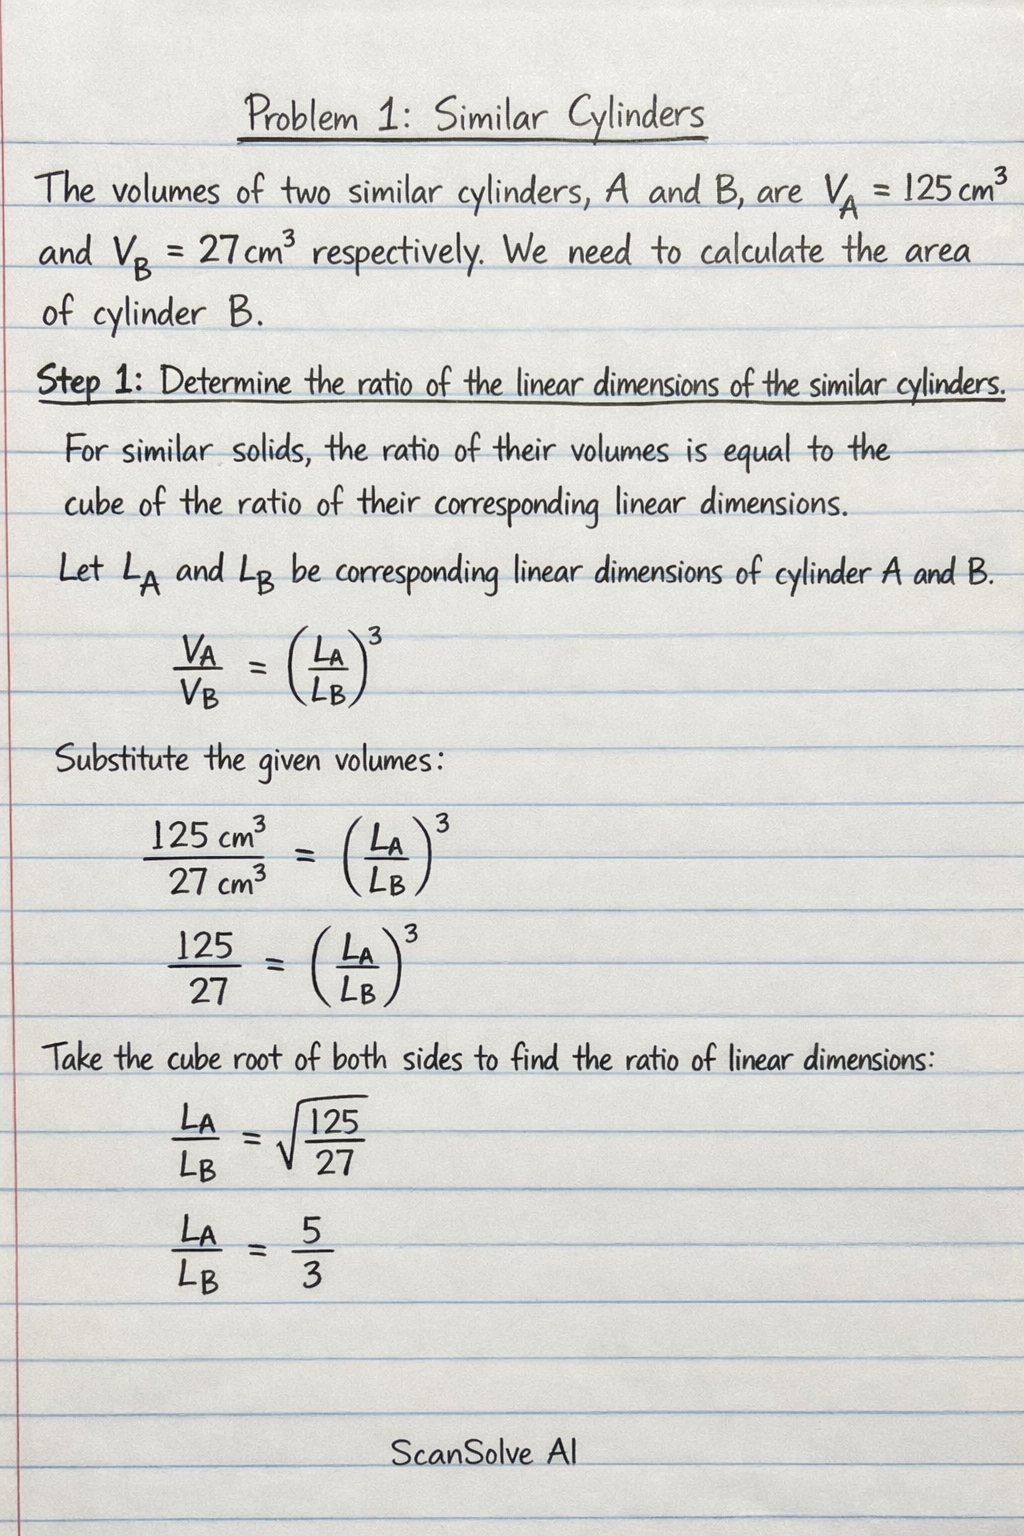 Problem 1: Similar Cylinders
The volumes of two similar cylinders, A and B, are V_A = 125 cm³
and V_B = 27 cm³ respectively. We need to calculate the area
of cylinder B.
Step 1: Determine the ratio of the linear dimensions of the similar cylinders.
For similar solids, the ratio of their volumes is equal to the
cube of the ratio of their corresponding linear dimensions.
Let L_A and L_B be corresponding linear dimensions of cylinder A and B.
V_A/V_B = (L_A/L_B)³
Substitute the given volumes:
125 cm³/27 cm³ = (L_A/L_B)³
125/27 = (L_A/L_B)³
Take the cube root of both sides to find the ratio of linear dimensions:
L_A/L_B = √(125/27)
L_A/L_B = 5/3
ScanSolve AI